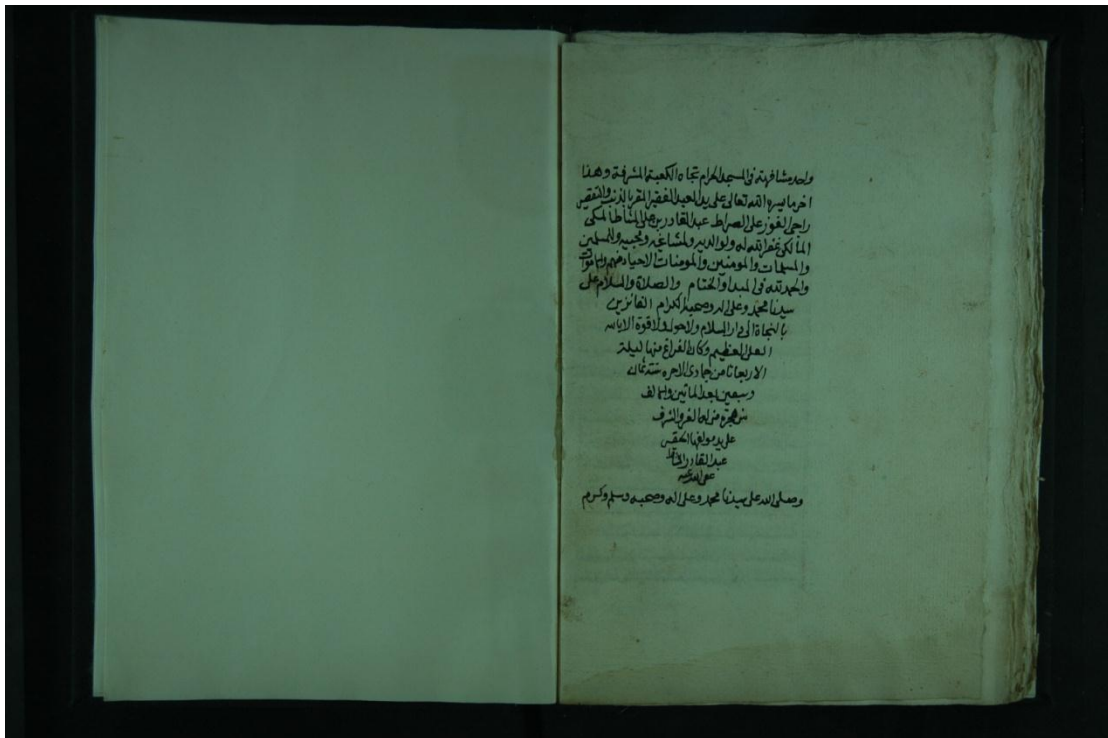 واحد مشافهته في المسجد الحرام تجاه الكعبة المشرفة وهذا
اخر ما يسره الله تعالى على يد العبد الفقير المقر بالذنب والتقصير
راجي الفوز على الصراط عبد القادر بن علي المشاط المكي
المالكي غفر الله له ولوالديه ولمشايخه ومحبيه وللمسلمين
والمسلمات والمومنين والمومنات الاحياء منهم والاموات
والحمد لله في المبدا والختام والصلاة والسلام على
سيدنا محمد وعلى اله وصحبه الكرام الفائزين
بالنجاة الى دار السلام ولا حول ولا قوة الا بالله
العلي العظيم وكان الفراغ منها ليلة
الاربعا ثامن جمادى الاخره سنة ثمان
وسبعين بعد الماتين والالف
من هجرة من له العز والشرف
على يد مولفها الحقير
عبد القادر المشاط
عفى الله عنه
وصلى الله على سيدنا محمد وعلى اله وصحبه وسلم وكرم